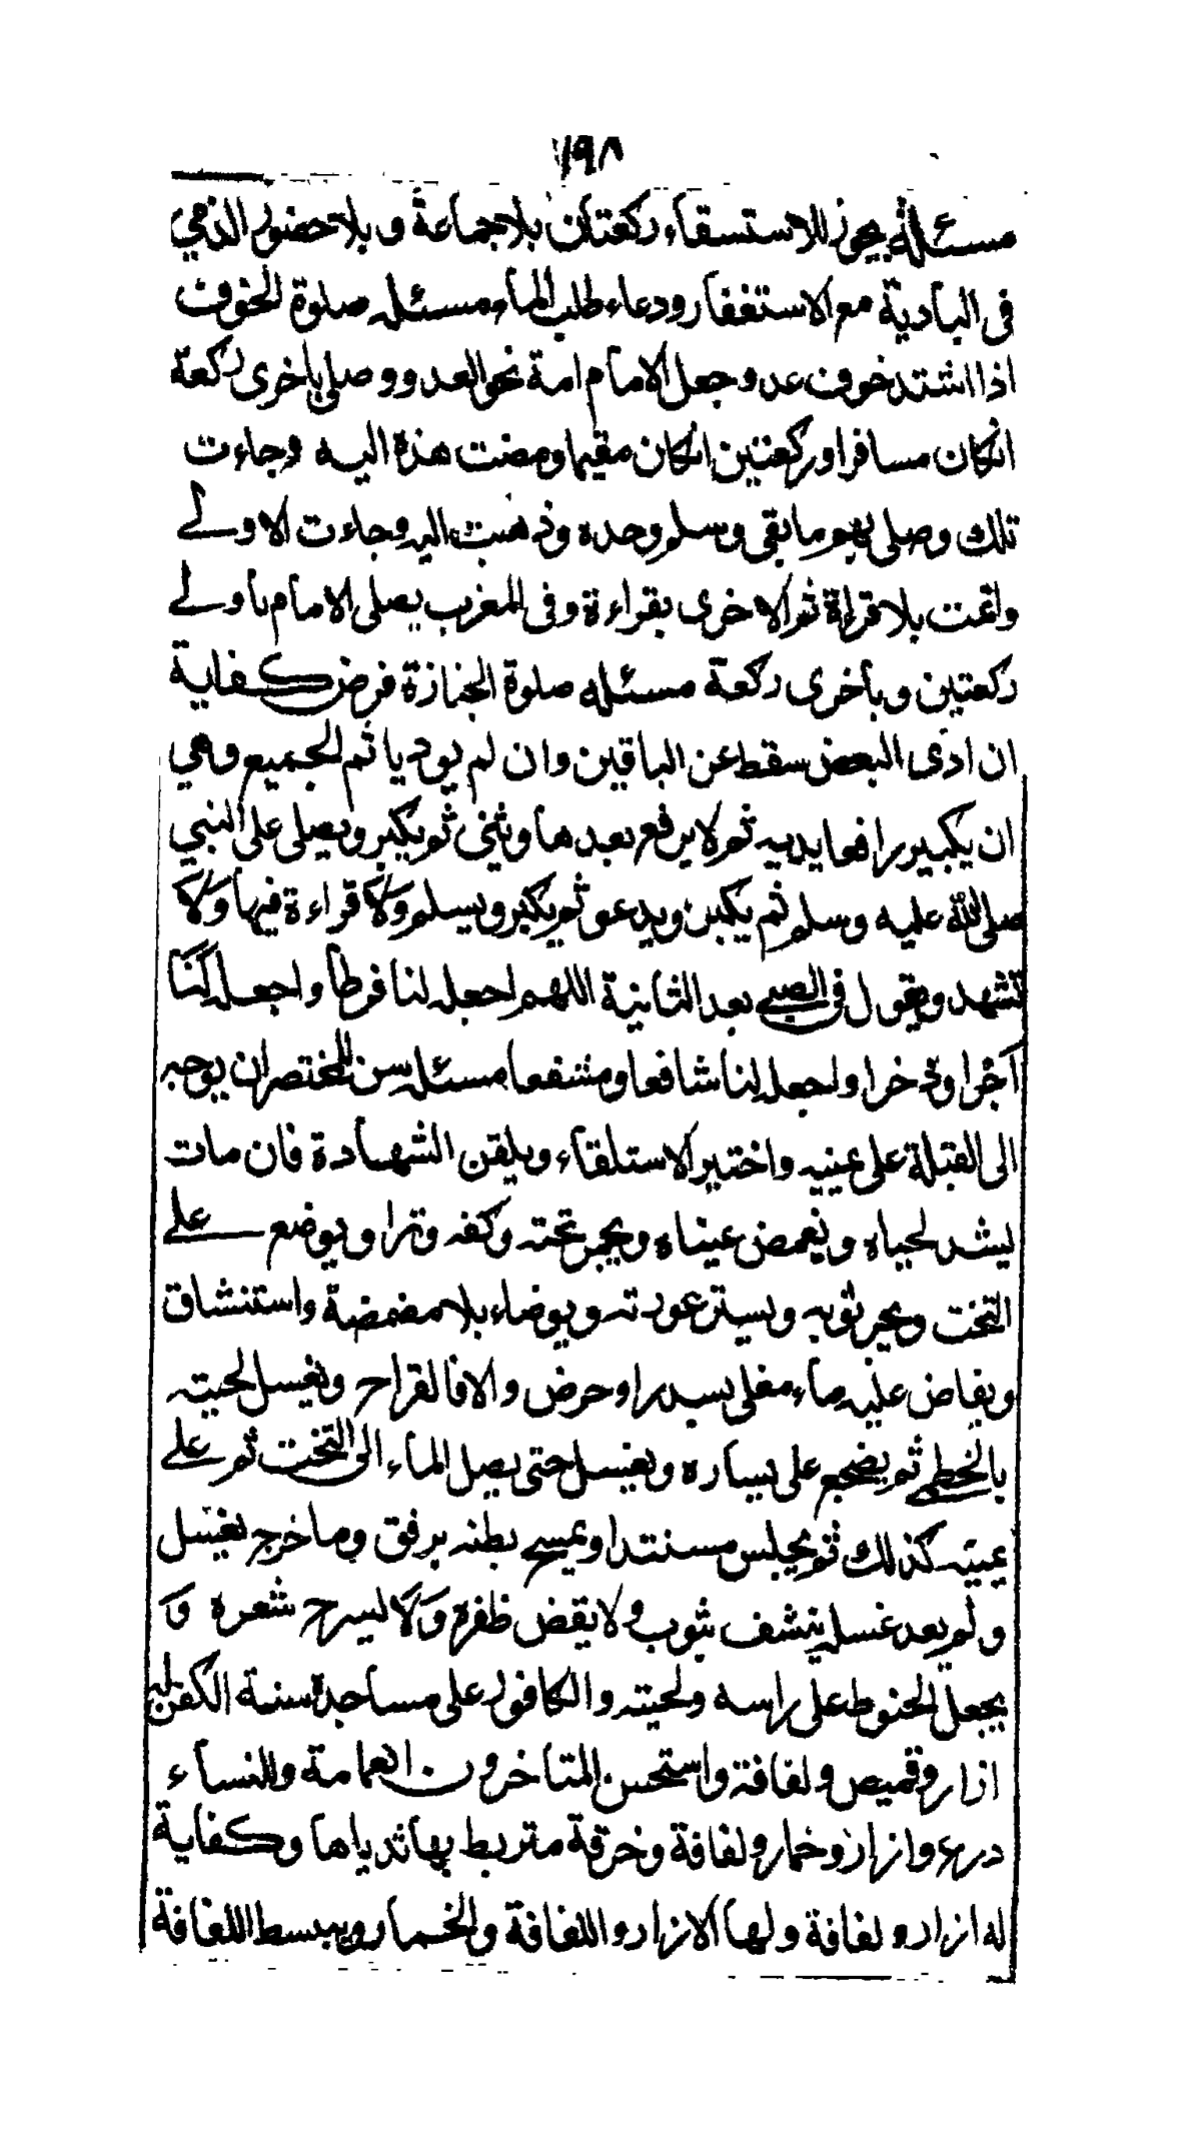 ١٩٨
مسئلة يجوز للاستسقاء ركعتان بلا جماعة و بلا حضور الذمي
فى البادية مع الاستغفار ودعاء طلب الماء مسئله صلوة الخوف
اذا اشتد خوف عدو جعل الامام امة نحو العدو وصلى باخرى ركعة
انكان مسافرا او ركعتين انكان مقيما ومضت هذه اليه وجاءت
تلك وصلى بهم ما بقى وسلم وحده وذهبت اليه وجاءت الاولے
واتمت بلا قراءة ثم الاخرى بقراءة وفى المغرب يصلى الامام باولے
ركعتين وباخرى ركعة مسئله صلوة الجنازة فرض كفاية
ان ادى البعض سقط عن الباقين وان لم يود ياثم الجميع وهي
ان يكبر رافعا يديه ثم لا يرفع بعدها ويثنى ثم يكبر ويصلى على النبي
صلى الله عليه وسلم ثم يكبر ويدعو ثم يكبر ويسلم ولا قراءة فيها ولا
تشهد ويقول فى الصبے بعد الثانية اللهم اجعله لنا فرطا واجعله لنا
اجرا وذخرا واجعله لنا شافعا ومشفعا مسئله سن للمختصر ان يوجه
الى القبلة على يمينه واختير الاستلقاء ويلقن الشهادة فان مات
يشد لحياه ويغمض عيناه ويجمر تخته وكفنه وترا ويوضع علے
التخت ويجر ثوبه ويستر عورته ويوضاء بلا مضمضة واستنشاق
ويفاض عليه ماء مغلى بسدر او حرض والا فالقراح ويغسل لحيته
بالخطمے ثم يضجع على يساره ويغسل حتى يصل الماء الى التخت ثم علے
يمينه كذلك ثم يجلس مسنتدا ويمسح بطنه برفق وما خرج يغسل
ولم يعد غسله ينشف بثوب ولا يقض ظفره ولا يسرح شعره و
يجعل الحنوط على راسه ولحيته والكافور على مساجده سنة الكفن له
ازار وقميص ولفافة واستحسن المتاخرون العمامة وللنساء
درع وازار وخمار ولفافة وخرقة متربط بها ثدياها وكفاية
له ازار ولفافة ولها الازار واللفافة والخمار ويبسط اللفافة